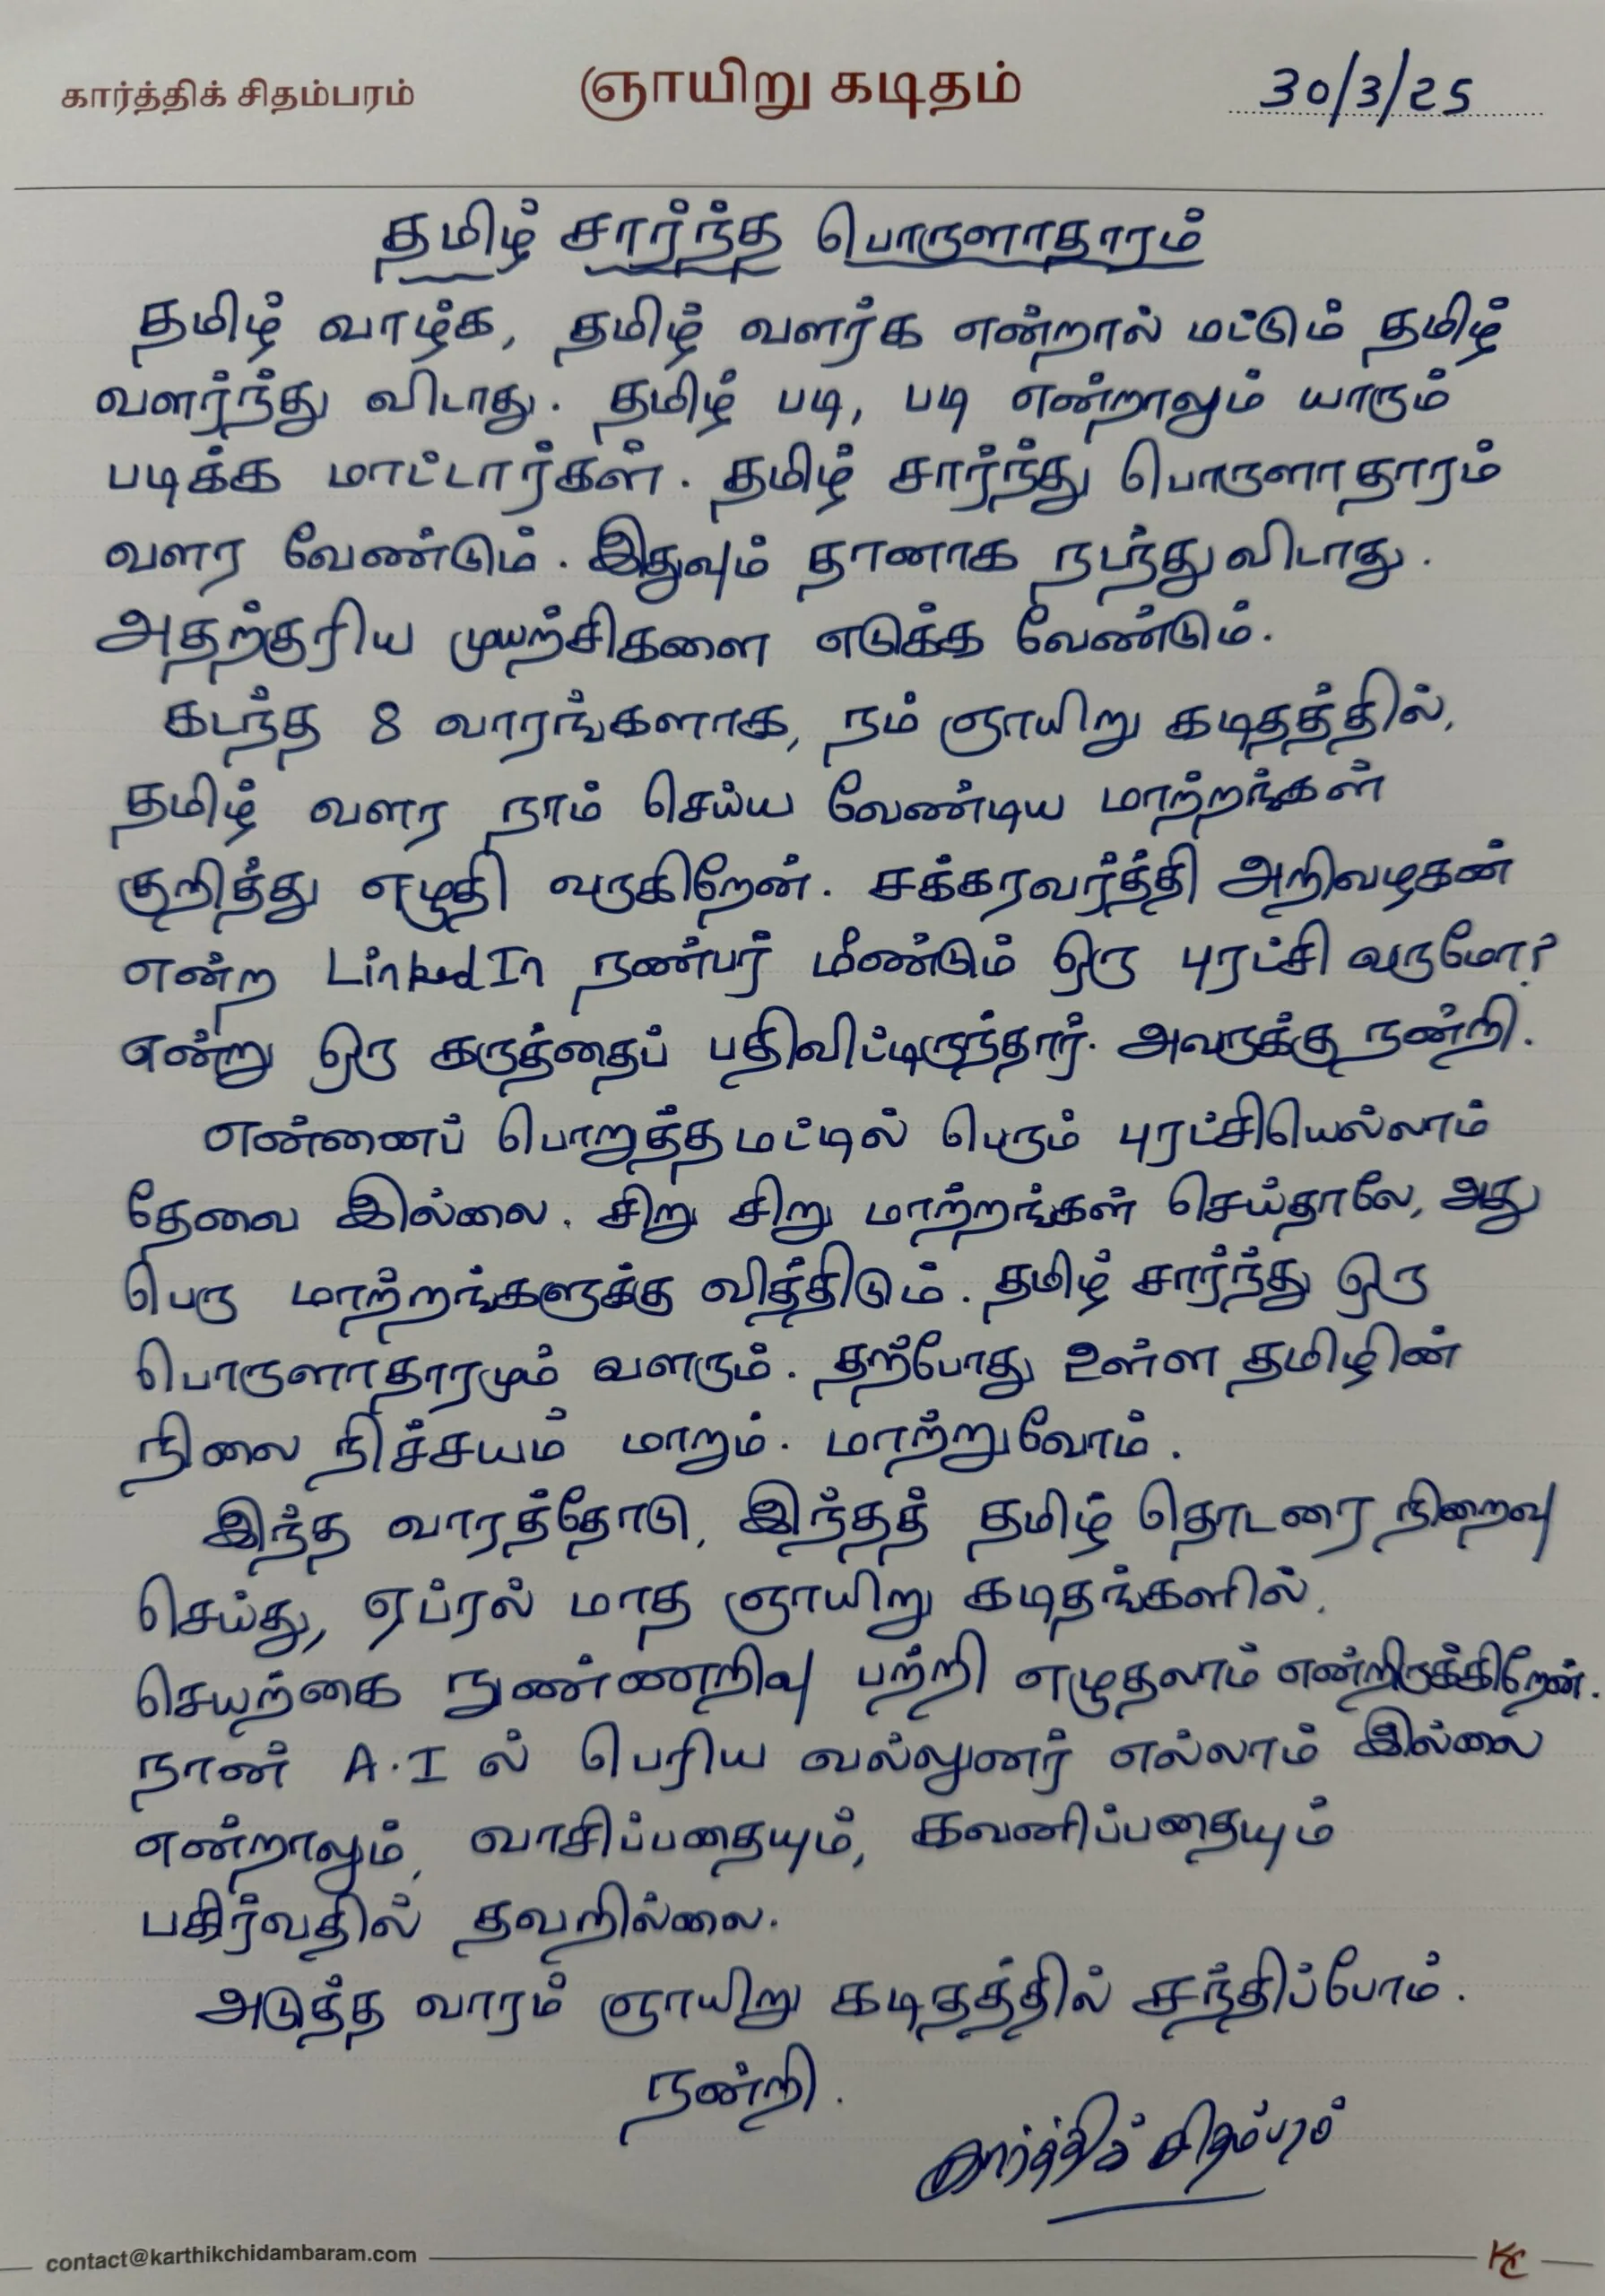 கார்த்திக் சிதம்பரம் ஞாயிறு கடிதம் 30/3/25
தமிழ் சார்ந்த பொருளாதாரம்
தமிழ் வாழ்க, தமிழ் வளர்க என்றால் மட்டும் தமிழ்
வளர்ந்து விடாது. தமிழ் படி, படி என்றாலும் யாரும்
படிக்க மாட்டார்கள். தமிழ் சார்ந்து பொருளாதாரம்
வளர வேண்டும். இதுவும் தானாக நடந்துவிடாது.
அதற்குரிய முயற்சிகளை எடுக்க வேண்டும்.
கடந்த 8 வாரங்களாக, நம் ஞாயிறு கடிதத்தில்,
தமிழ் வளர நாம் செய்ய வேண்டிய மாற்றங்கள்
குறித்து எழுதி வருகிறேன். சக்கரவர்த்தி அறிவழகன்
என்ற LinkedIn நண்பர் மீண்டும் ஒரு புரட்சி வருமோ?
என்று ஒரு கருத்தைப் பதிவிட்டிருந்தார். அவருக்கு நன்றி.
என்னைப் பொறுத்தமட்டில் பெரும் புரட்சியெல்லாம்
தேவை இல்லை. சிறு சிறு மாற்றங்கள் செய்தாலே, அது
பெரு மாற்றங்களுக்கு வித்திடும். தமிழ் சார்ந்து ஒரு
பொருளாதாரமும் வளரும். தற்போது உள்ள தமிழின்
நிலை நிச்சயம் மாறும். மாற்றுவோம்.
இந்த வாரத்தோடு, இந்தத் தமிழ் தொடரை நிறைவு
செய்து, ஏப்ரல் மாத ஞாயிறு கடிதங்களில்,
செயற்கை நுண்ணறிவு பற்றி எழுதலாம் என்றிருக்கிறேன்.
நான் A.I ல் பெரிய வல்லுனர் எல்லாம் இல்லை
என்றாலும், வாசிப்பதையும், கவனிப்பதையும்
பகிர்வதில் தவறில்லை.
அடுத்த வாரம் ஞாயிறு கடிதத்தில் சந்திப்போம்.
நன்றி.
கார்த்திக் சிதம்பரம்
contact@karthikchidambaram.com KC